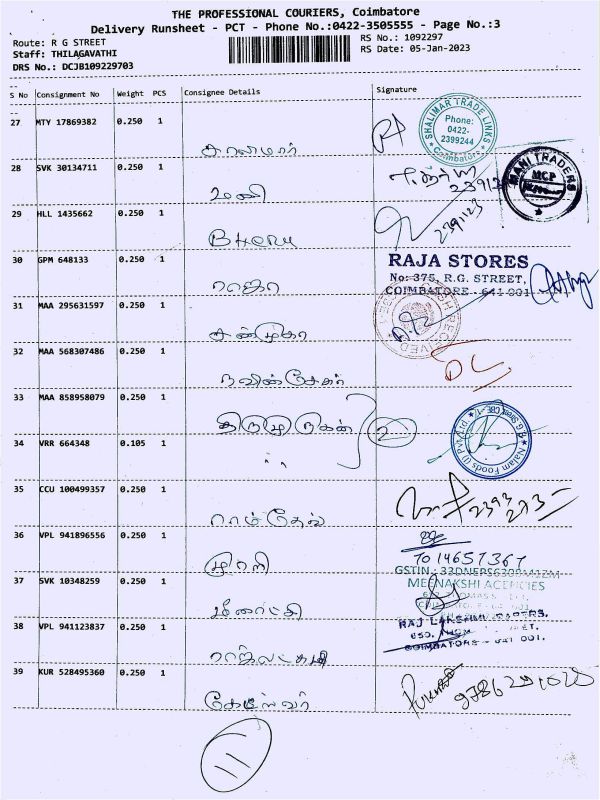 THE PROFESSIONAL COURIERS, Coimbatore
Delivery Runsheet - PCT - Phone No.:0422-3505555 - Page No.:3
Route: R G STREET
RS No.: 1092297
Staff: THILAGAVATHI
RS Date: 05-Jan-2023
DRS No.: DCJB109229703
S No Consignment No Weight PCS Consignee Details Signature
27 MTY 17869382 0.250 1
SHALIMAR TRADE LINKS
Phone:
0422-
2399244
Coimbatore
28 SVK 30134711 0.250 1
மணி
MANI TRADERS
29 HLL 1435662 0.250 1
2391123
30 GPM 648133 0.250 1
ராஜா
RAJA STORES
No: 375, R.G. STREET,
COIMBATORE - 641 001
31 MAA 295631597 0.250 1
சண்முகா
RECEIVED
32 MAA 568307486 0.250 1
33 MAA 858958079 0.250 1
திருமுருகன் 2
34 VRR 664348 0.105 1
Nalam Foods (I) Pvt Ltd
35 CCU 100499357 0.250 1
ராம்தேவ்
36 VPL 941896556 0.250 1
முரளி
TO 14657367
37 SVK 10348259 0.250 1
மீனாட்சி
MEENAKSHI AGENCIES
38 VPL 941123837 0.250 1
ராஜலட்சுமி
COIMBATORE - 641 001.
39 KUR 528495360 0.250 1
11